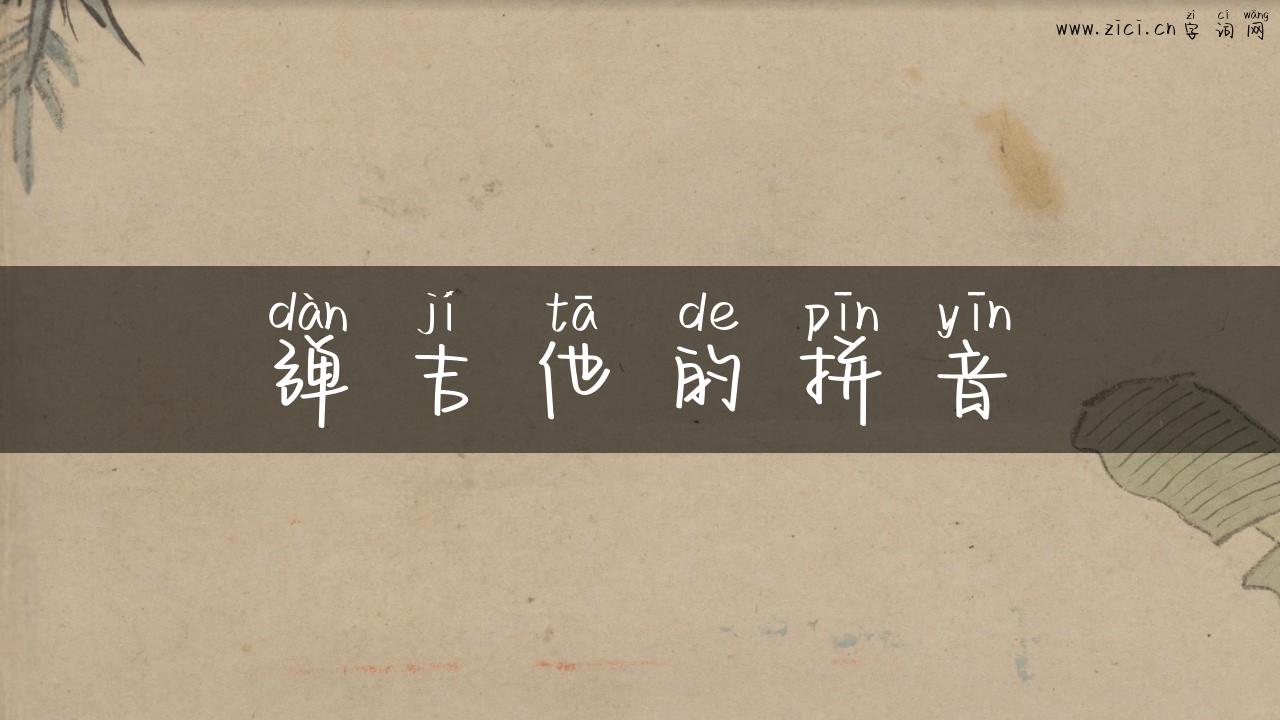 zì cí wǎng
www.zici.cn 字词网
dàn jí tā de pīn yīn
弹吉他的拼音